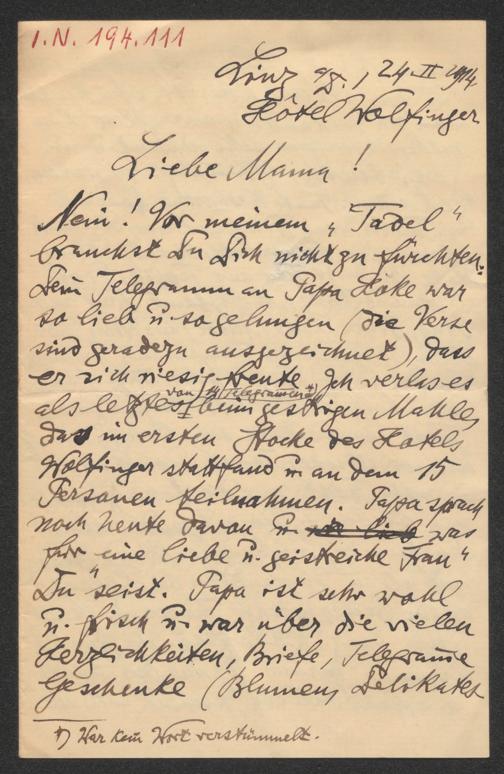 I.N. 194.111
Linz a/D., 24. II. 1914.
Hôtel Wolfinger
Liebe Mama!
Nein! Vor meinem „Tadel“
brauchst Du Dich nicht zu fürchten.
Dein Telegramm an Papa Hoke war
so lieb u. so gelungen (die Verse
sind geradezu ausgezeichnet), dass
er sich riesig freute. Ich verlas es
von 14 Telegrammen *)
als letztes beim gestrigen Mahle,
das im ersten Stocke des Hotels
Wolfinger stattfand u. an dem 15
Personen teilnahmen. Papa sprach
noch heute davon u. was
für eine liebe u. geistreiche Frau“
Du „seist. Papa ist sehr wohl
u. frisch u. war über die vielen
Herzlichkeiten, Briefe, Telegramme
Geschenke (Blumen, Delikates
*) War kein Wort verstümmelt.